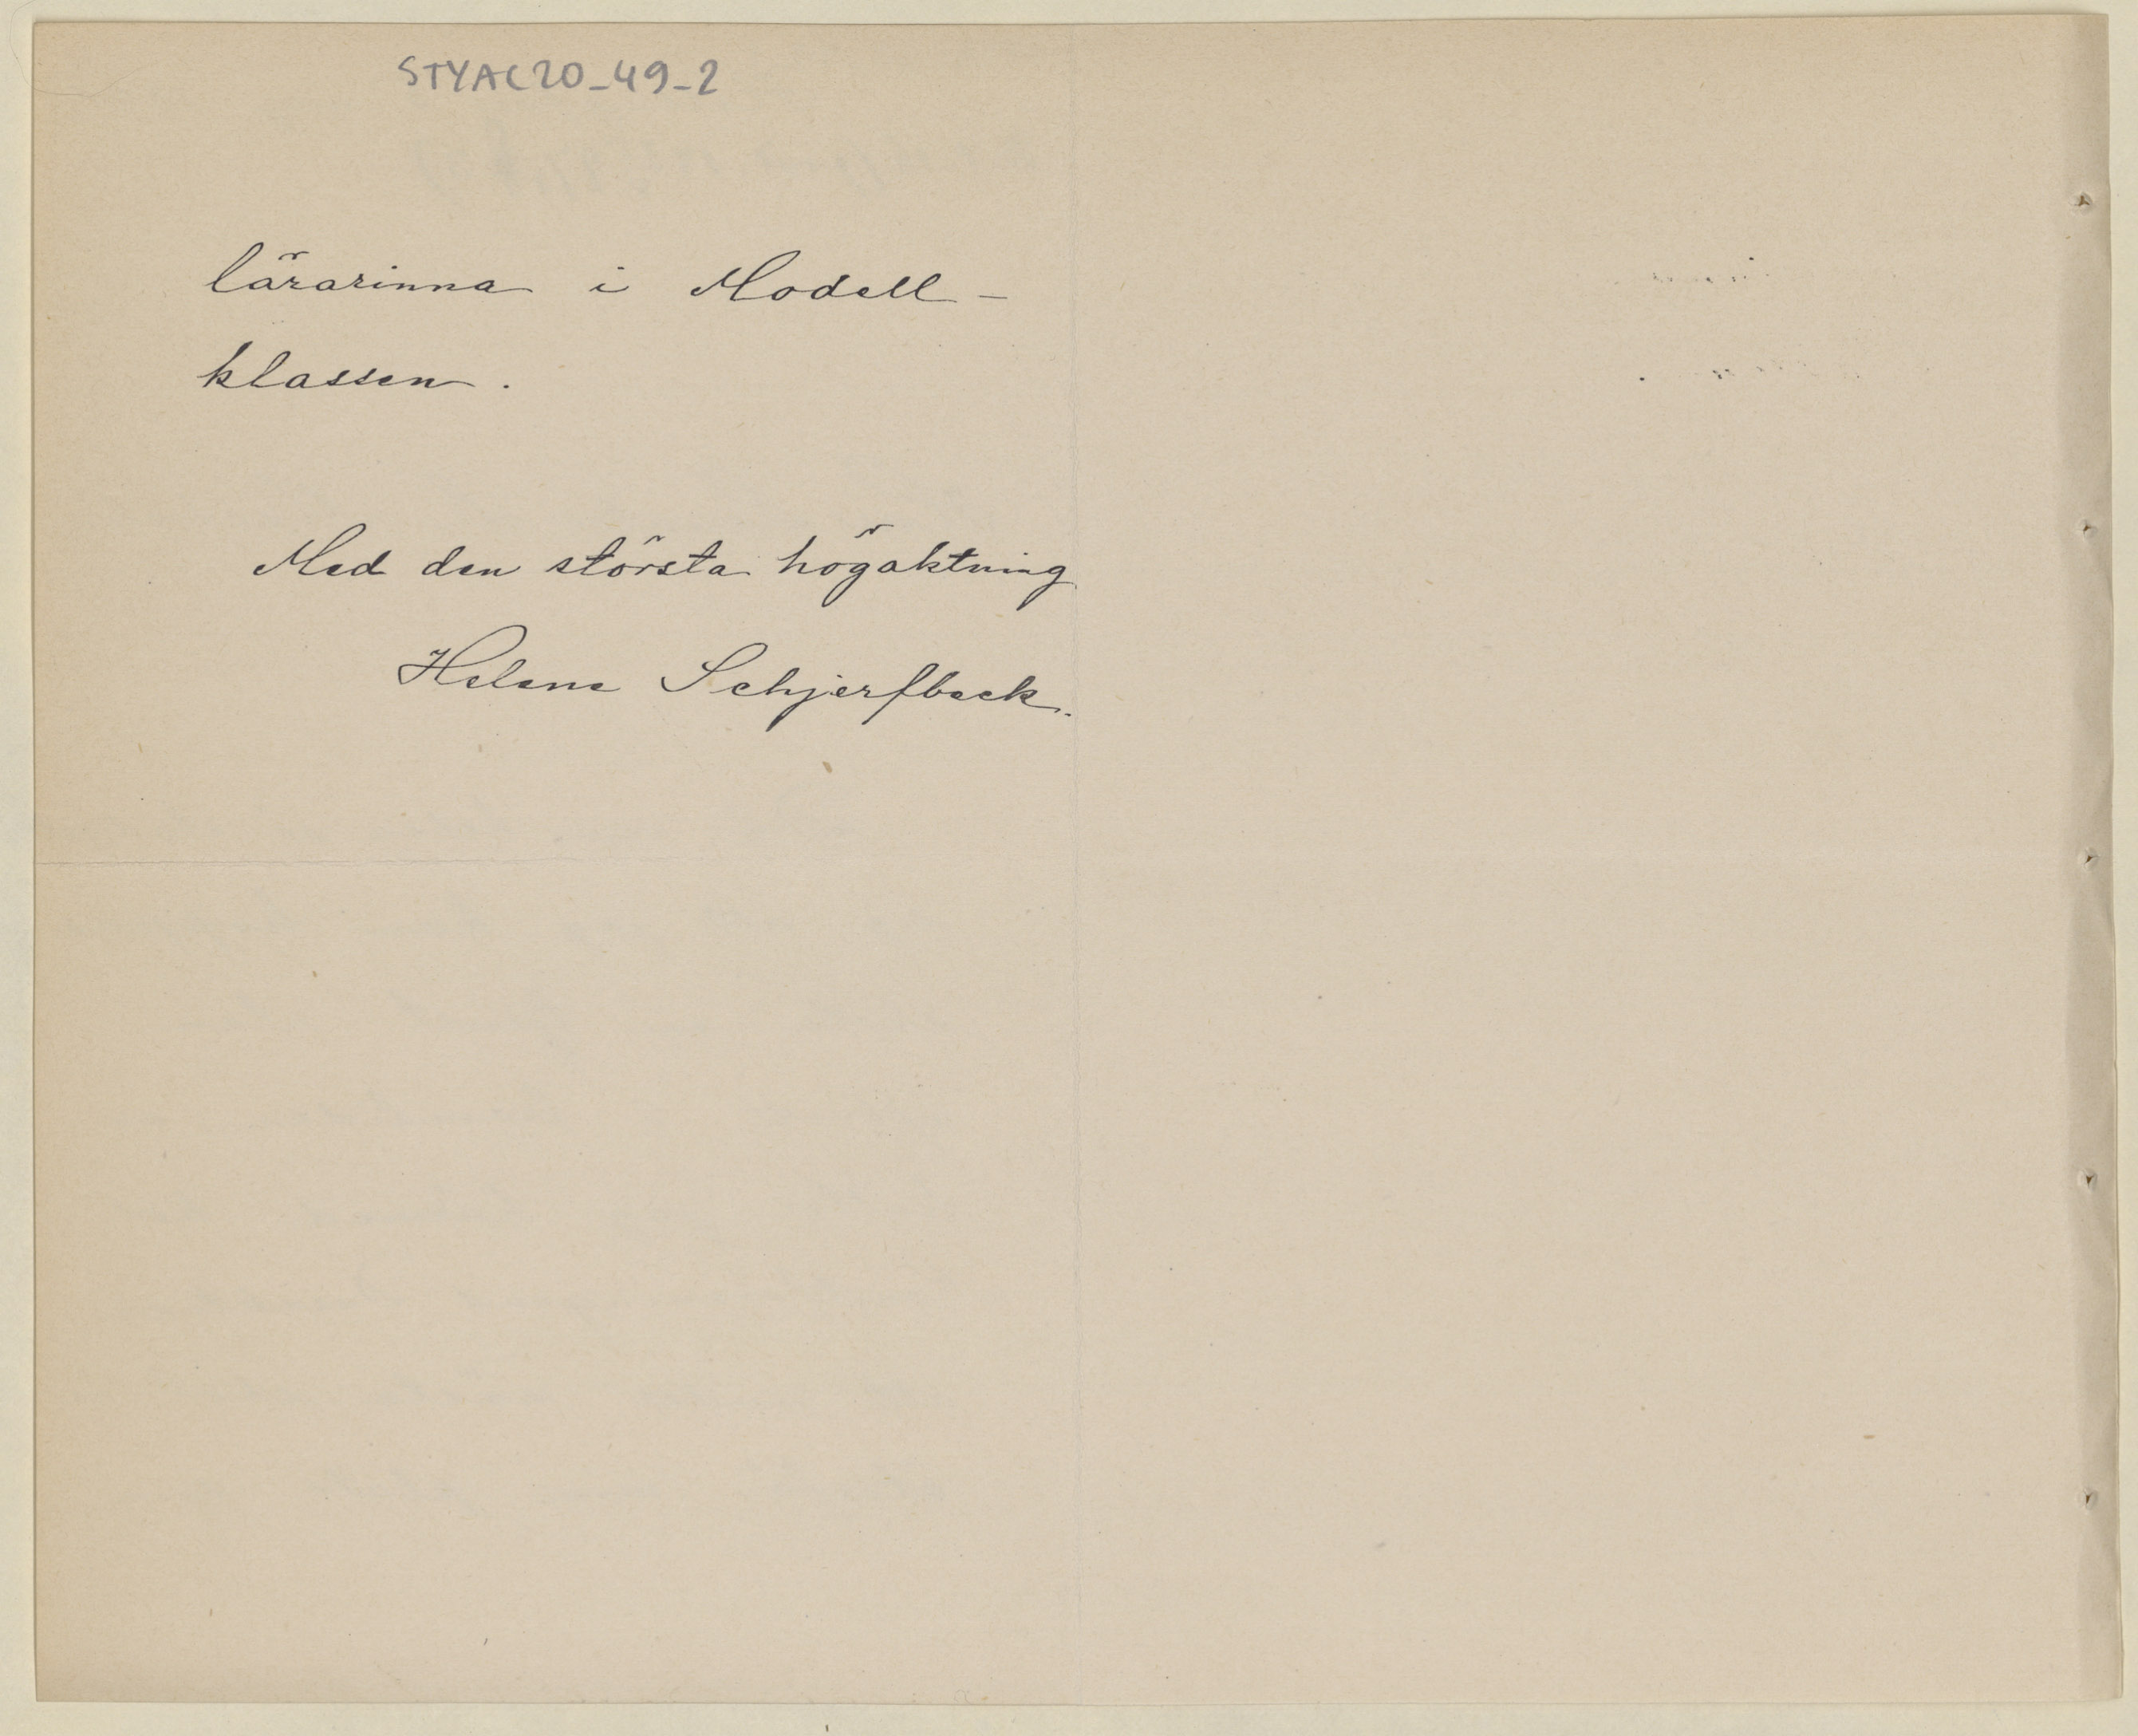 STYAC20_49_2
lärarinna i Modell-
klassen.
Med den största högaktning
Helene Schjerfbeck.